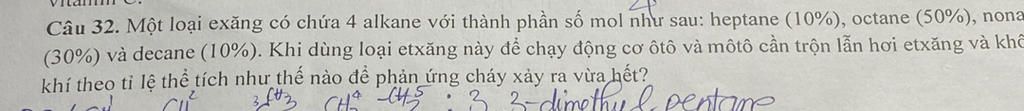 Câu 32. Một loại exăng có chứa 4 alkane với thành phần số mol như sau: heptane (10%), octane (50%), nona
(30%) và decane (10%). Khi dùng loại etxăng này để chạy động cơ ôtô và môtô cần trộn lẫn hơi etxăng và khô
khí theo tỉ lệ thể tích như thế nào để phản ứng cháy xảy ra vừa hết?
CH2 3CH3 CH4 -CH5 : 3 3-dimethyl pentane